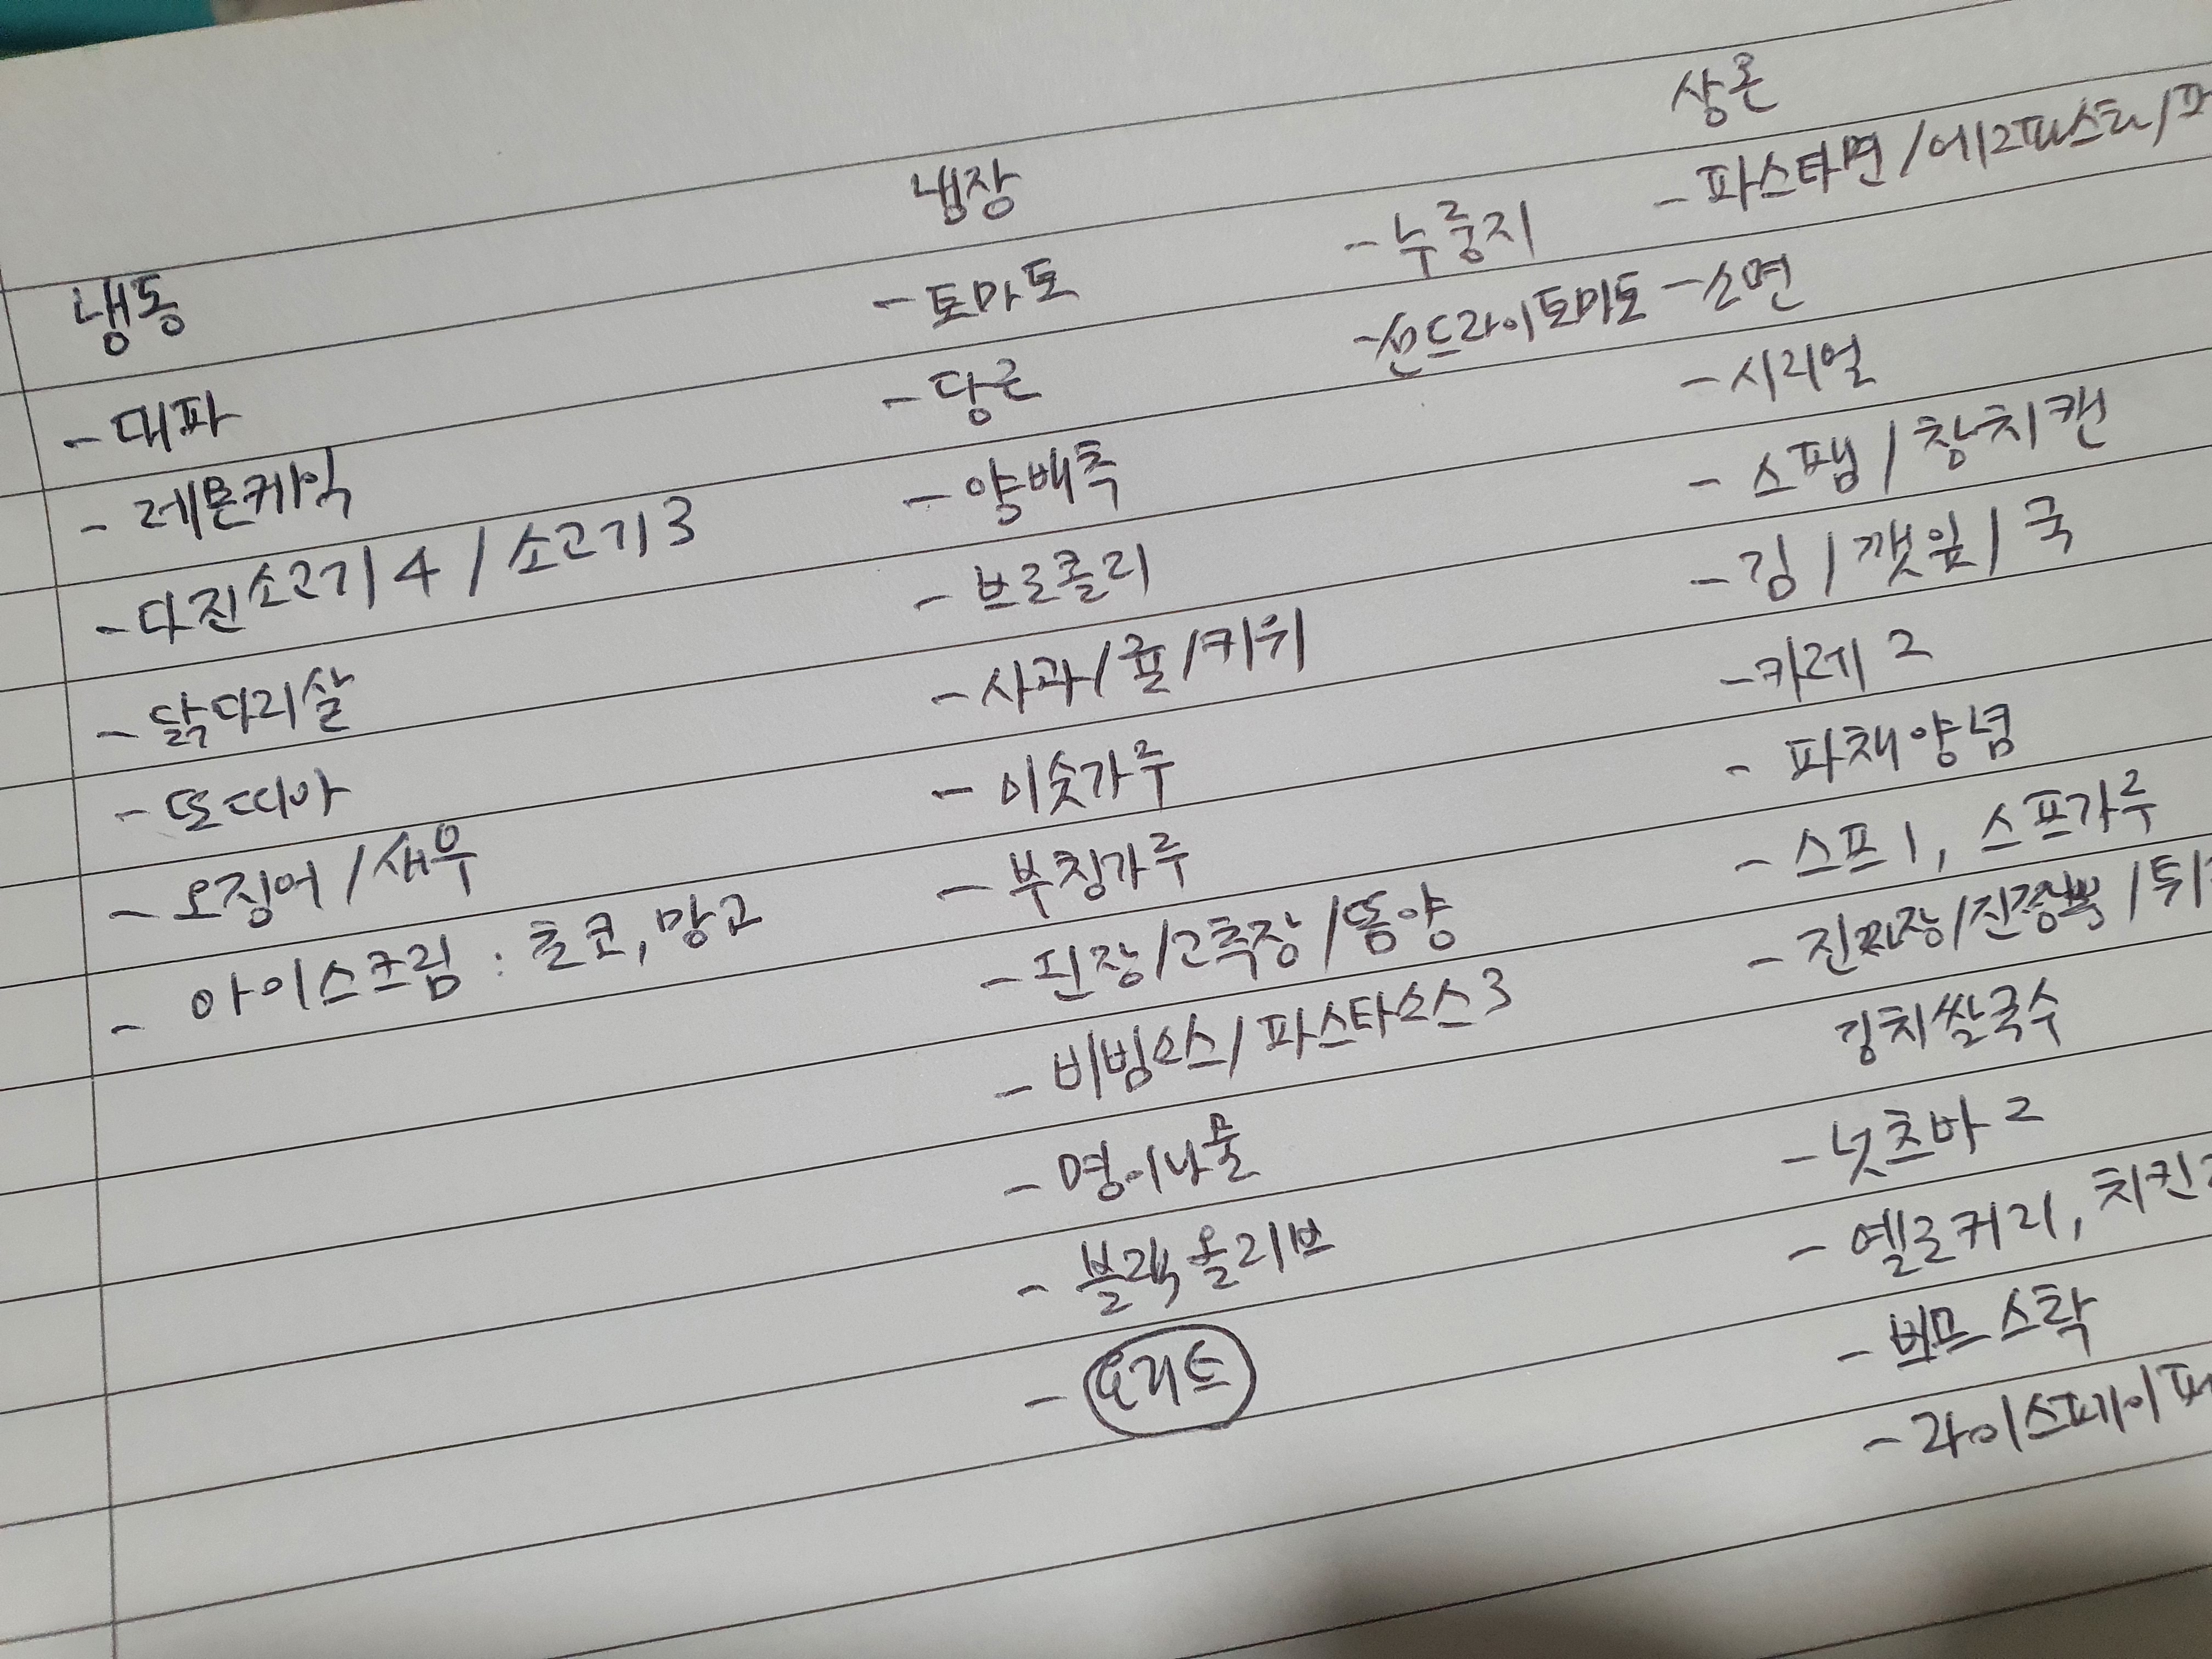 냉동
- 대파
- 레몬케익
- 다진소고기 4 / 소고기 3
- 닭다리살
- 또띠아
- 오징어 / 새우
- 아이스크림 : 초코, 망고
냉장
- 토마토
- 당근
- 양배추
- 브로콜리
- 사과/귤/키위
- 미숫가루
- 부침가루
- 된장/고추장/똠양
- 비빔소스/파스타소스 3
- 명이나물
- 블랙올리브
- 요거트
- 누룽지
- 썬드라이토마토
상온
- 파스타면/에그파스타/파
- 소면
- 시리얼
- 스팸 / 참치캔
- 김 / 깻잎 / 국
- 카레 2
- 파채양념
- 스프 1, 스프가루
- 진짜장/진짬뽕/튀
김치쌀국수
- 넛츠바 2
- 옐로커리, 치킨
- 스톡
- 라이스페이퍼